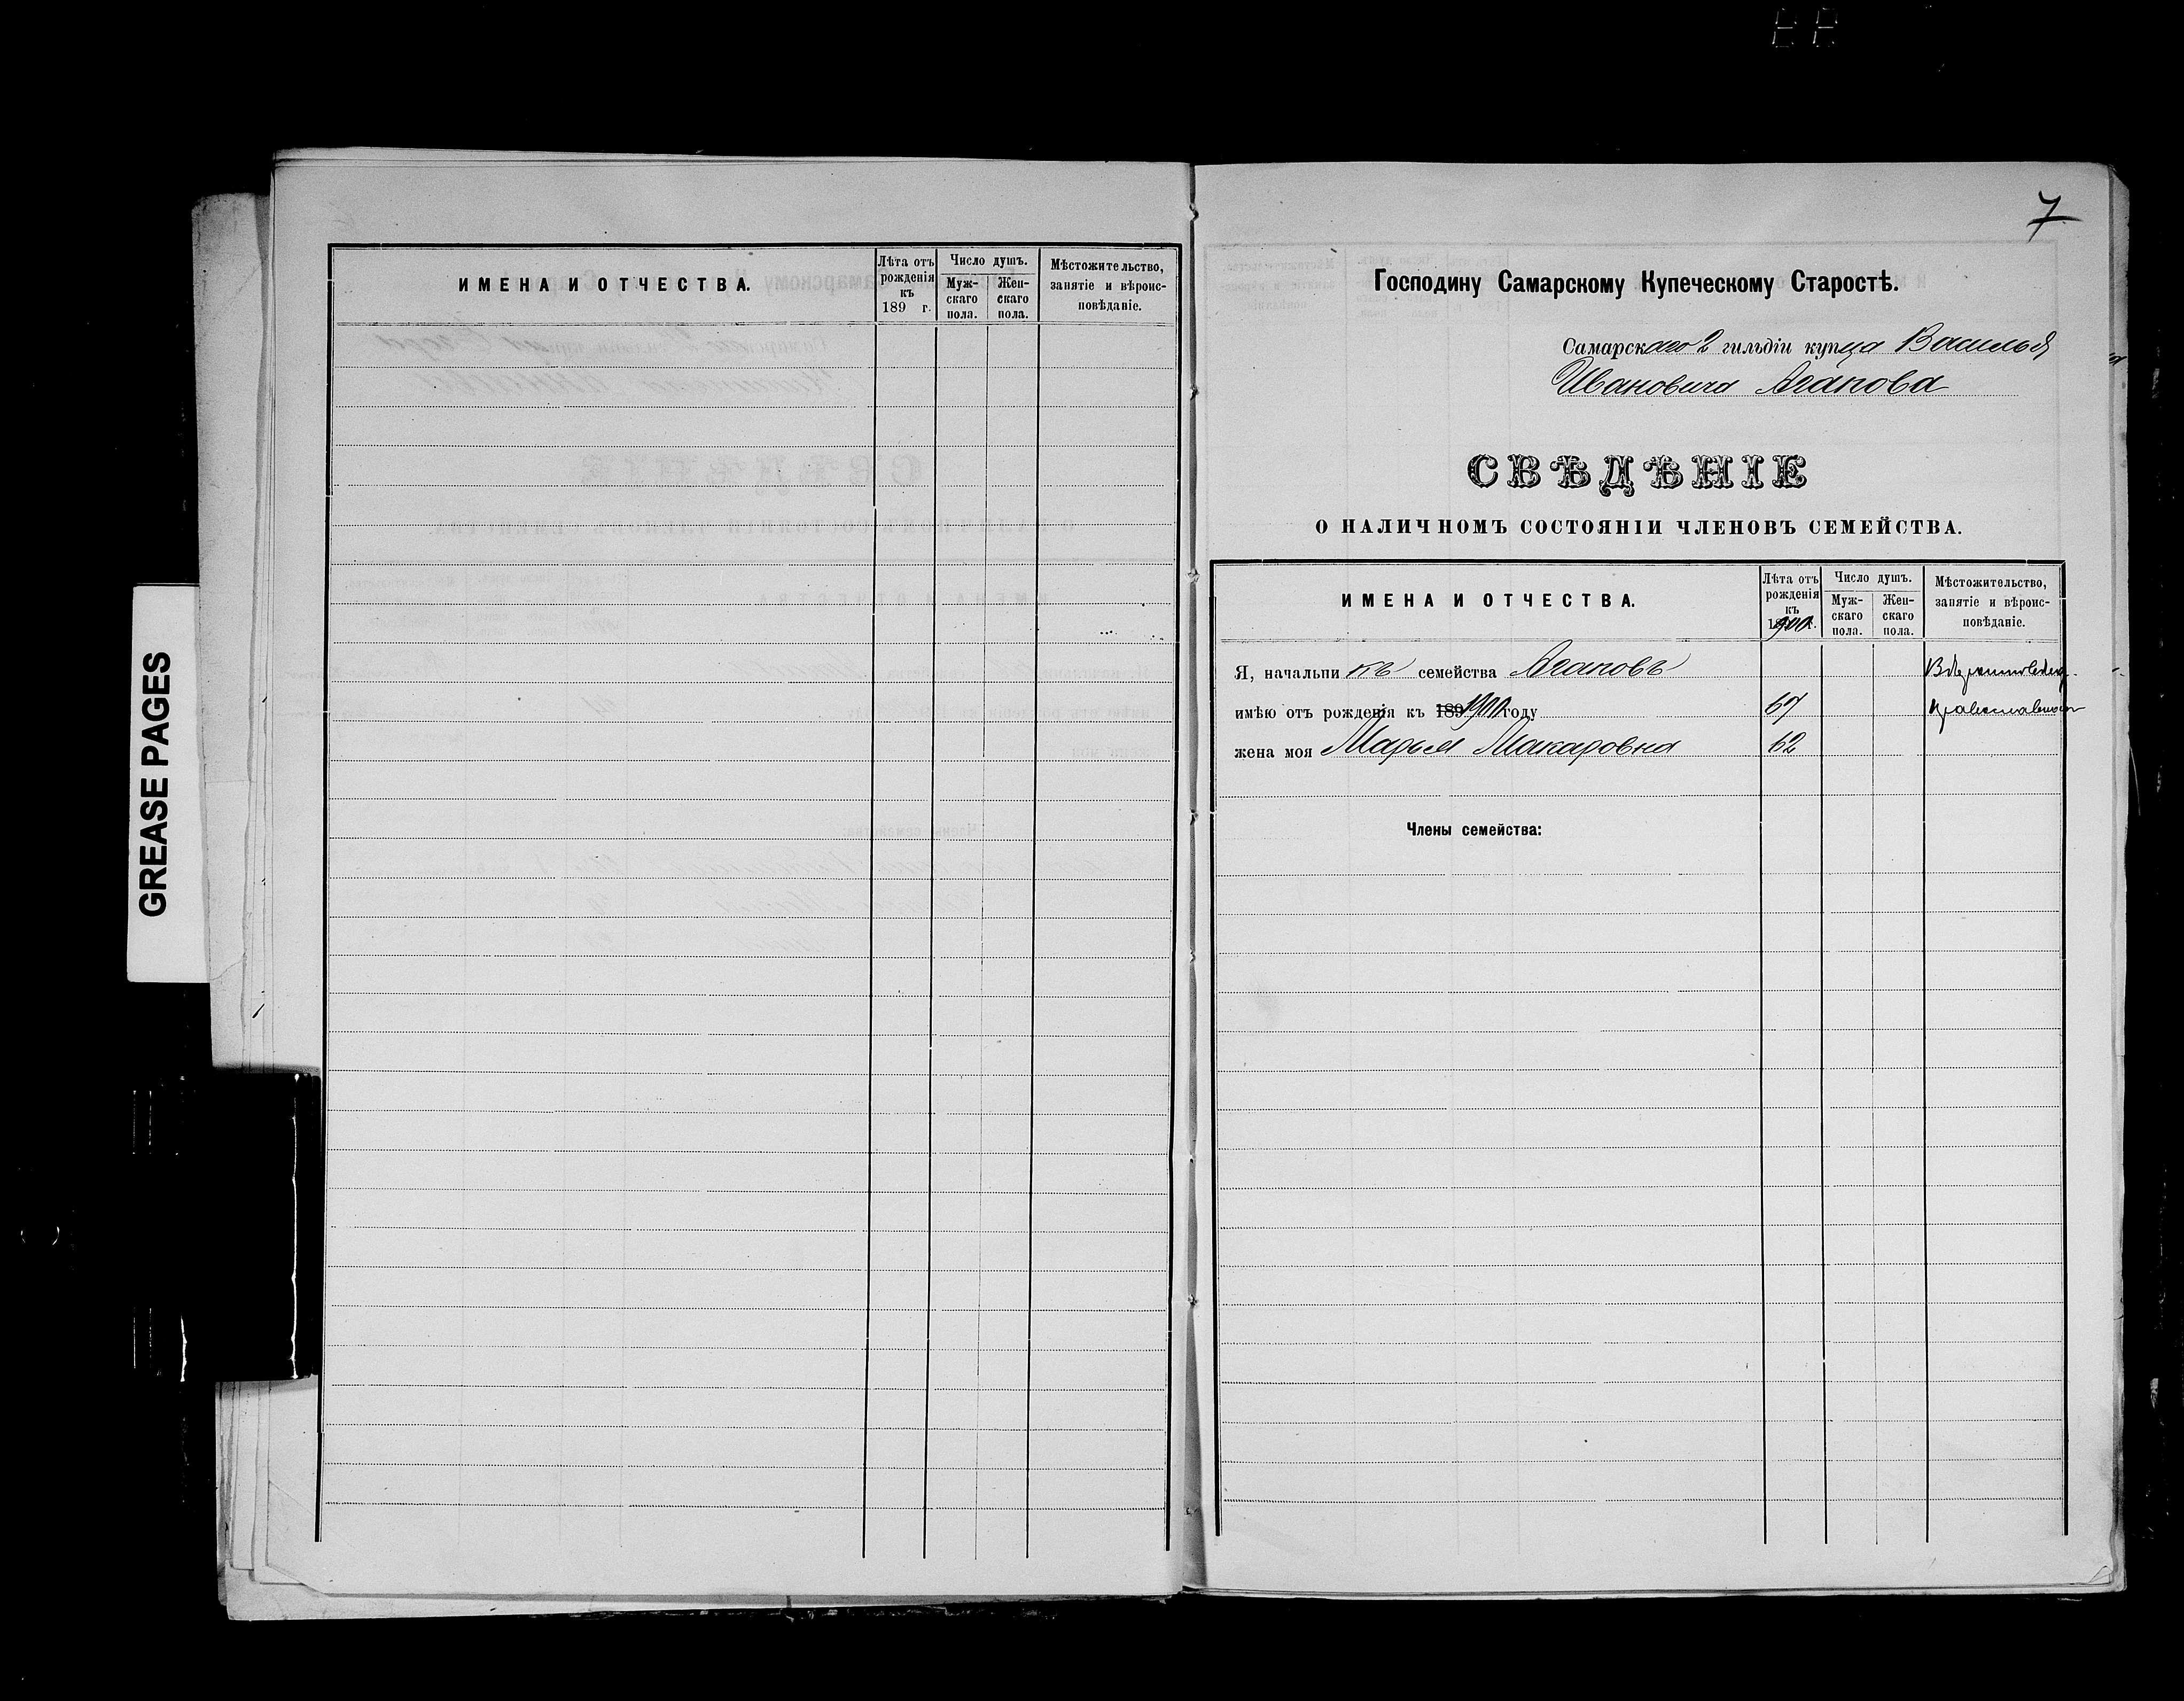 GREASE PAGES
ИМЕНА И ОТЧЕСТВА.
Лѣта отъ рожденія къ 189 г.
Число душъ.
Муж-скаго пола.
Жен-скаго пола.
Мѣстожительство, занятіе и вѣроис-повѣданіе.
7
Господину Самарскому Купеческому Старостѣ.
Самарскаго 2 гильдіи купца Василья
Ивановича Агапова
СВѢДѢНІЕ
О НАЛИЧНОМЪ СОСТОЯНІИ ЧЛЕНОВЪ СЕМЕЙСТВА.
ИМЕНА И ОТЧЕСТВА.
Лѣта отъ рожденія къ 1900 г.
Число душъ.
Муж-скаго пола.
Жен-скаго пола.
Мѣстожительство, занятіе и вѣроис-повѣданіе.
Я, начальникъ семейства Агаповъ
имѣю отъ рожденія къ 189 1900 году 67
жена моя Марья Макаровна 62
Члены семейства: